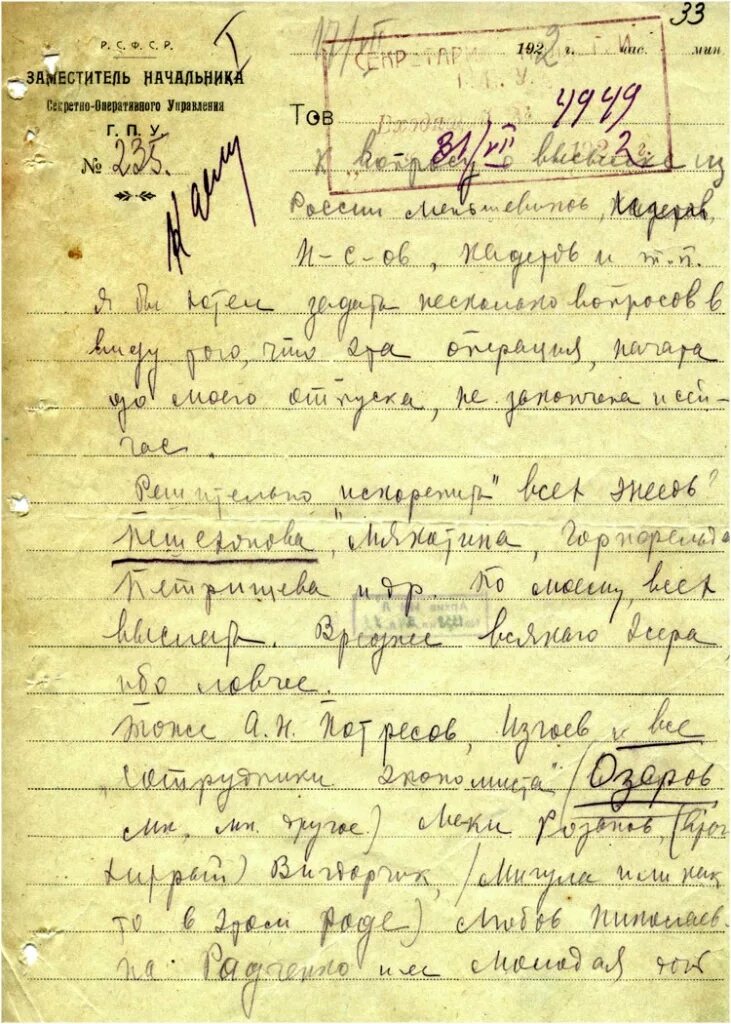 33
Р. С. Ф. С. Р.
I
17/VII 1922 г. час. мин.
ЗАМЕСТИТЕЛЬ НАЧАЛЬНИКА
СЕКРЕТАРИ
Секретно-Оперативного Управления
Г. П. У.
Г. П. У.
Тов
4949
№ 235.
31/VII 1922 г.
К вопросу о высылке из
России меньшевиков,
н-с-ов, кадетов и т.п.
я бы хотел задать несколько вопросов в
виду того, что эта операция, начата
до моего отпуска, не закончена и сей-
час.
Решительно „искоренить" всех энесов?
Пешехонова, Мякотина, Горнфельда
Петрищева и др. По моему, всех
выслать. Вреднее всякаго эсера,
ибо ловчее.
Тоже А.Н. Потресов, Изгоев и все
сотрудники „Экономиста" (Озеров
мн. мн. другое.) Меки Розанов, (враг
хитрый) Вигдорчик, (Мигула или как
то в этом роде) Любовь Николаев-
на Радченко и ее молодая доч